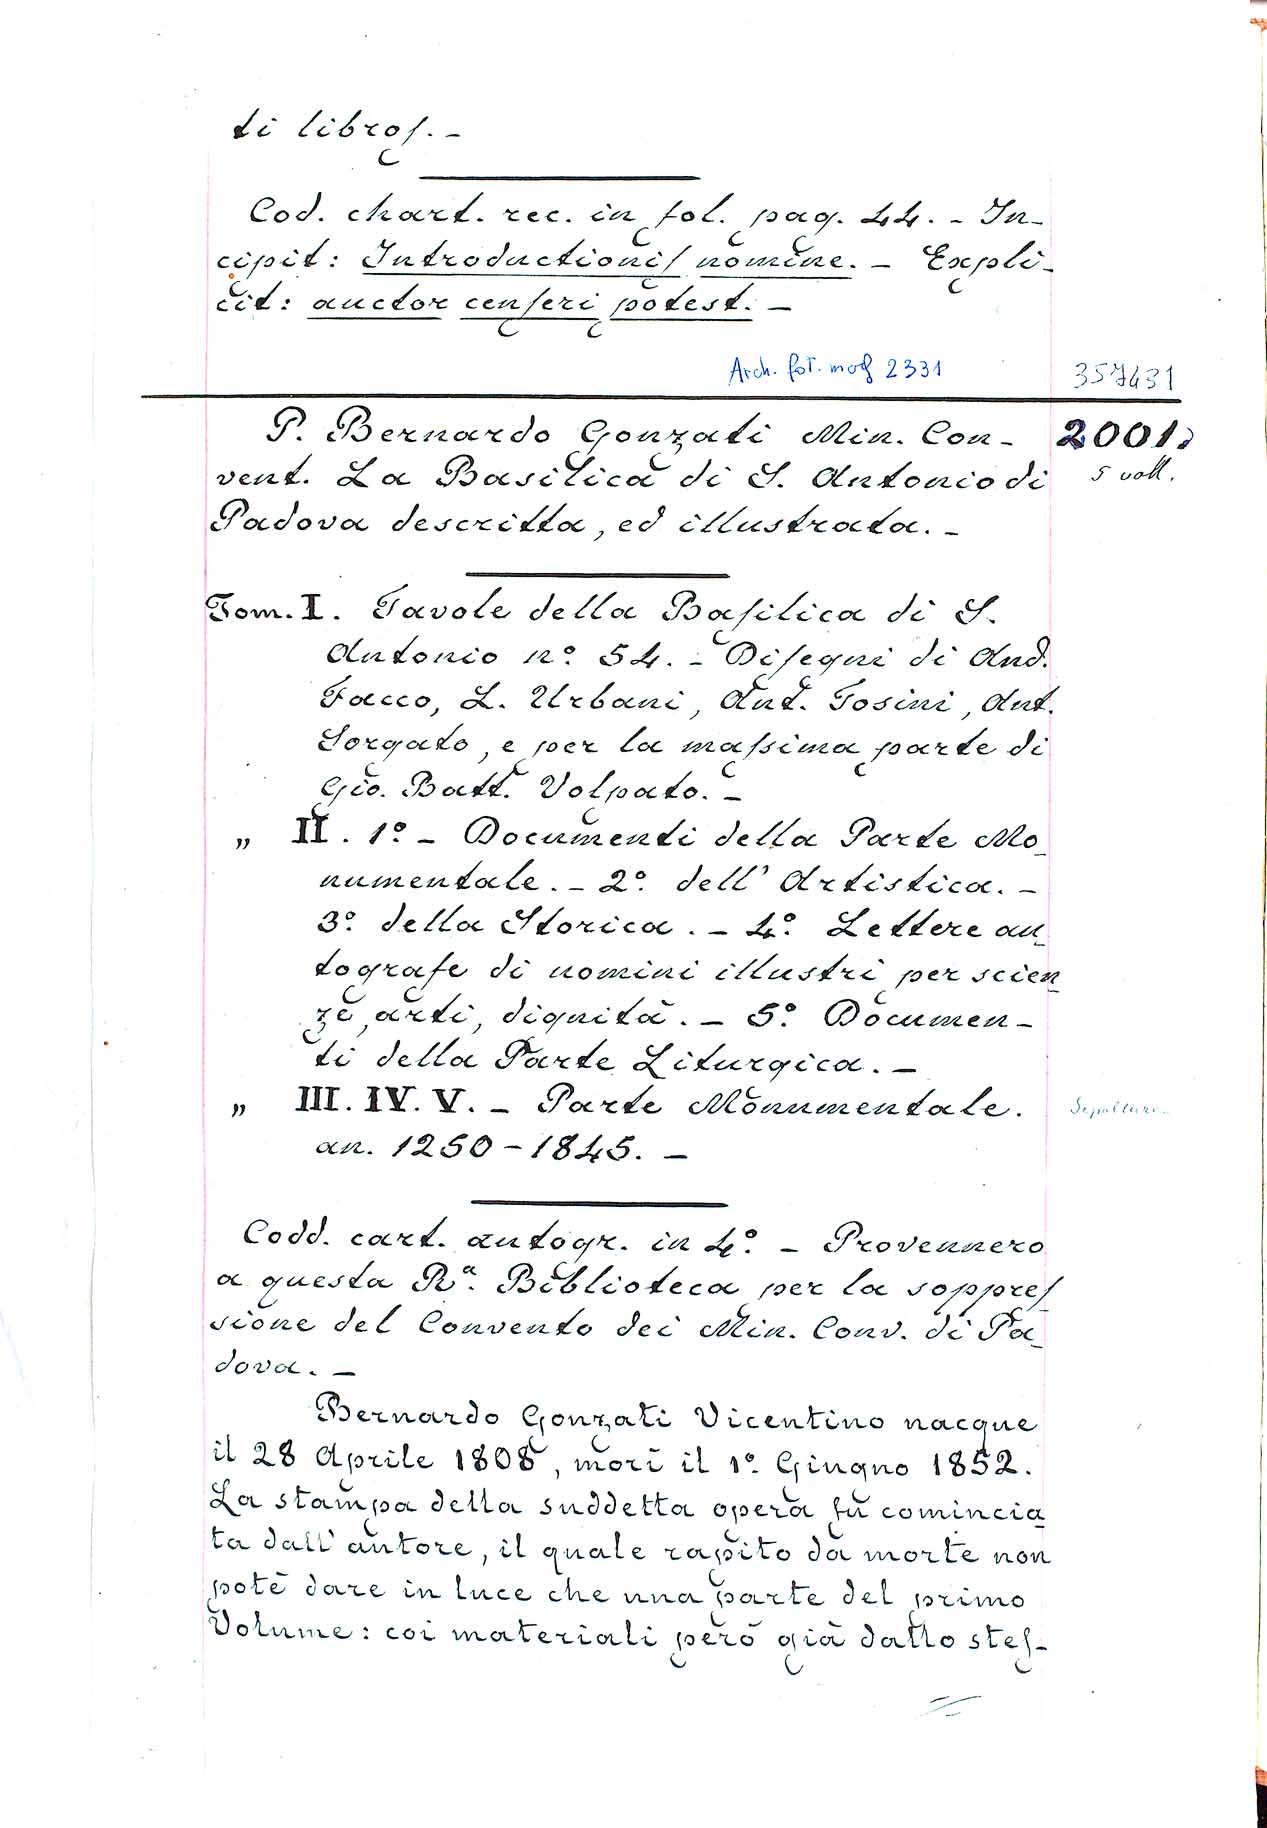 ti libros. -
Cod. chart. rec. in fol. pag. 44. - In-
cipit: Introductionis nomine. - Expli-
cit: auctor censeri potest. -
Arch. fot. mag 2331 357431
P. Bernardo Gonzati Min. Con- 2001.
vent. La Basilica di S. Antonio di 5 voll.
Padova descritta, ed illustrata. -
Tom. I. Tavole della Basilica di S.
Antonio n.° 54. - Disegni di And.
Facco, L. Urbani, Ant. Tosini, Ant.
Sorgato, e per la massima parte di
Gio. Batt. Volpato. -
„ II. 1.° - Documenti della Parte Mo-
numentale. - 2.° dell' Artistica. -
3.° della Storica. - 4.° Lettere au-
tografe di uomini illustri per scien-
ze, arti, dignità. - 5.° Documen-
ti della Parte Liturgica. -
„ III. IV. V. - Parte Monumentale. Sepolture.
an. 1250 - 1845. -
Codd. cart. autogr. in 4.° - Provennero
a questa R.a Biblioteca per la soppres-
sione del Convento dei Min. Conv. di Pa-
dova. -
Bernardo Gonzati Vicentino nacque
il 28 Aprile 1808, morì il 1.° Giugno 1852.
La stampa della suddetta opera fu comincia-
ta dall' autore, il quale rapito da morte non
potè dare in luce che una parte del primo
Volume: coi materiali però già dallo stes-